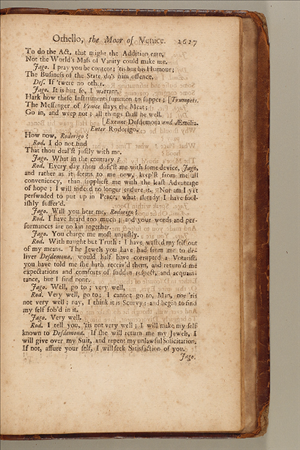 Othello, the Moor of Venice. 2627
To do the Act, that might the Addition earn,
Not the World's Mass of Vanity could make me.
Jago. I pray you be content; 'tis but his Humour;
The Business of the State do's him offence.
Des. If 'twere no other.
Jago. It is but so, I warrant.
Hark how these Instruments summon to supper; [Trumpets.
The Messenger of Venice stays the Meat;
Go in, and weep not; all things shall be well.
[Exeunt Desdemona and Æmilia.
Enter Rodorigo.
How now, Rodorigo!
Rod. I do not find
That thou deal'st justly with me.
Jago. What in the contrary?
Rod. Every day thou dafest me with some device, Jago,
and rather as it seems to me now, keep'st from me all
conveniency, than suppliest me with the least Advantage
of hope; I will indeed no longer endure it. Nor am I yet
perswaded to put up in Peace, what already I have foo-
lishly suffer'd.
Jago. Will you hear me, Rodorigo?
Rod. I have heard too much; and your words and per-
formances are no kin together.
Jago. You charge me most unjustly.
Rod. With naught but Truth: I have wasted my self out
of my means. The Jewels you have had from me to de-
liver Desdemona, would half have corrupted a Votarist:
you have told me she hath receiv'd them, and return'd me
expectations and comforts of sudden respect, and acquain-
tance, but I find none.
Jago. Well, go to; very well.
Rod. Very well, go to; I cannot go to, Man, nor 'tis
not very well; nay, I think it is Scurvy; and begin to find
my self fob'd in it.
Jago. Very well.
Rod. I tell you, 'tis not very well; I will make my self
known to Desdemona. If she will return me my Jewels, I
will give over my Suit, and repent my unlawful Solicitation.
If not, assure your self, I will seek Satisfaction of you.
Jago.